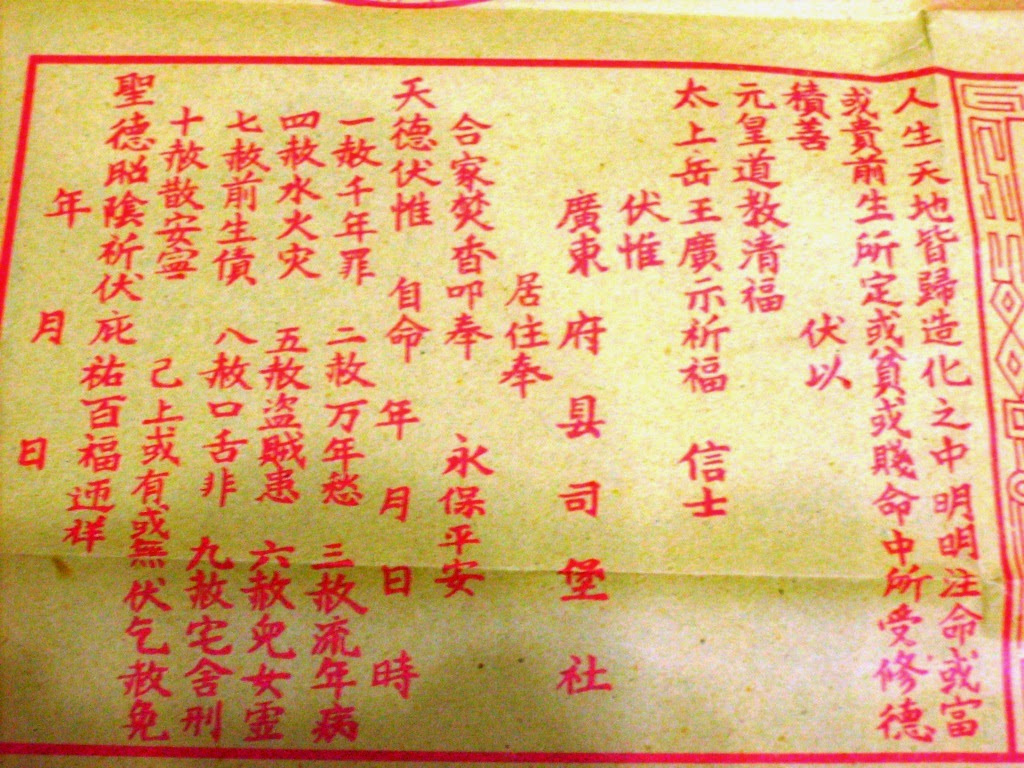 人生天地皆歸造化之中明明注命或富
或貴前生所定或貧或賤命中所受修德
積善 伏以
元皇道教清福
太上岳王廣示祈福 信士
伏惟
廣東府县司堡社
居住奉
合家焚香叩奉 永保平安
天德伏惟 自命年月日時
一赦千年罪 二赦万年愁 三赦流年病
四赦水火灾 五赦盗贼患 六赦兒女灵
七赦前生債 八赦口舌非 九赦宅舍刑
十赦散安寍 己上或有或無伏乞赦免
聖德昭陰祈伏庇祐百福迊祥
年月日